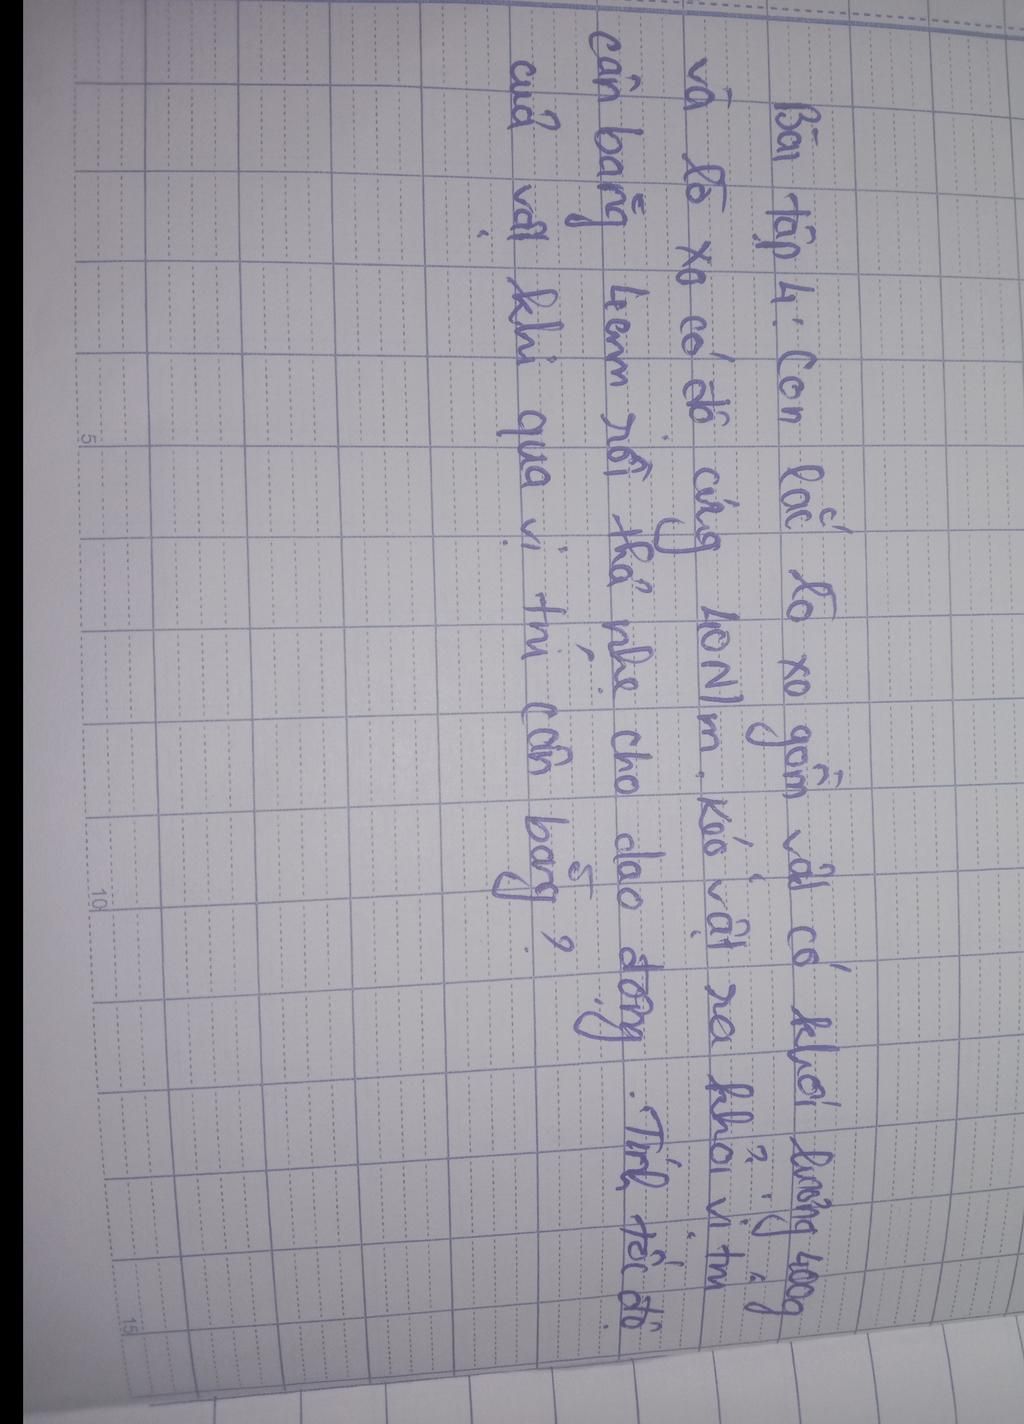 Bài tập 4: Con lắc lò xo gồm vật có khối lượng 400g
và lò xo có độ cứng 40N/m. Kéo vật ra khỏi vị trí
cân bằng 4cm rồi thả nhẹ cho dao động. Tính tốc độ
của vật khi qua vị trí cân bằng?
5
10
15